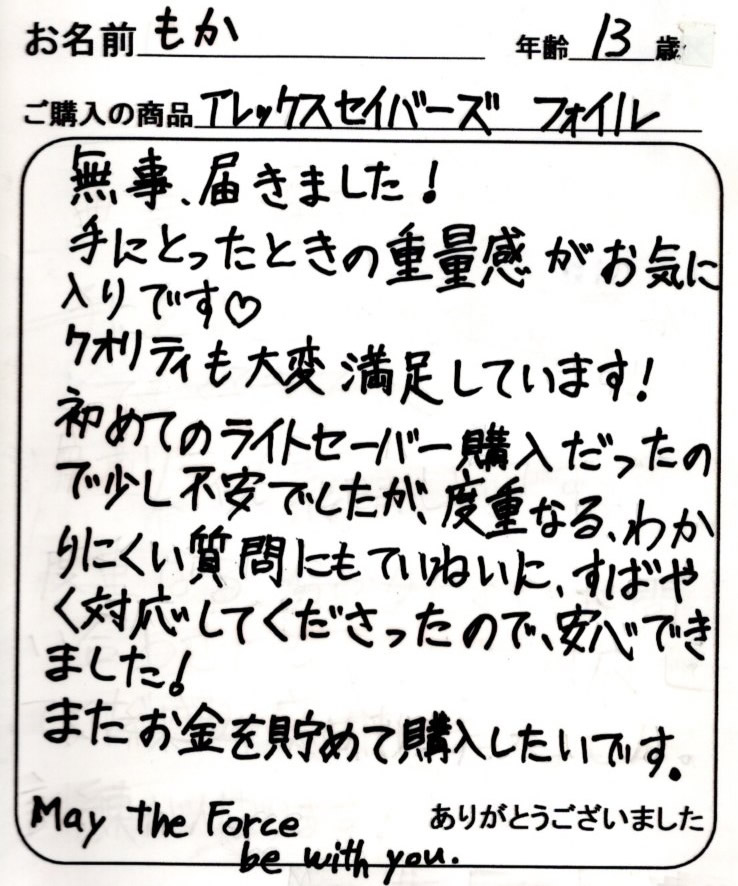 お名前 もか 年齢 13 歳
ご購入の商品 アレックスセイバーズ フォイル
無事、届きました!
手にとったときの重量感がお気に
入りです♡
クオリティも大変満足しています!
初めてのライトセーバー購入だったの
で少し不安でしたが、度重なる、わか
りにくい質問にもていねいに、すばや
く対応してくださったので、安心でき
ました!
またお金を貯めて購入したいです。
May the Force ありがとうございました
be with you.